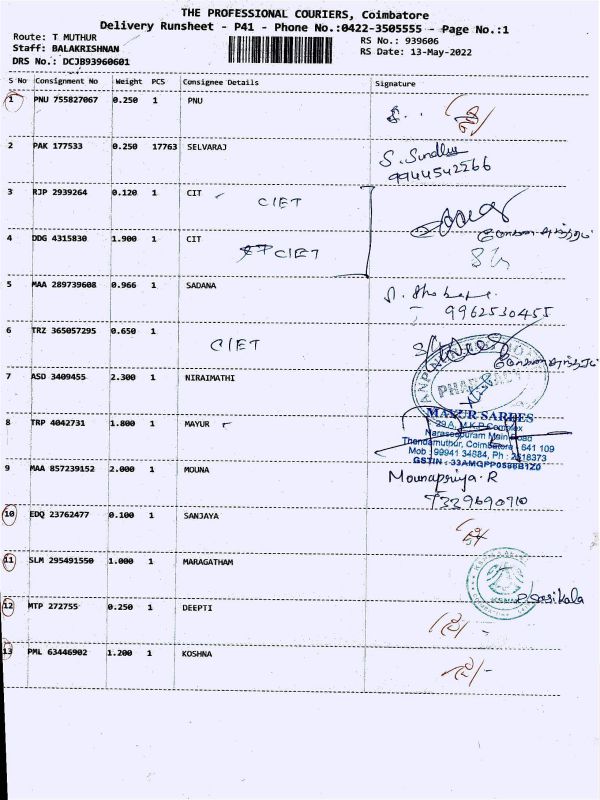 THE PROFESSIONAL COURIERS, Coimbatore
Delivery Runsheet - P41 - Phone No.:0422-3505555 - Page No.:1
Route: T MUTHUR
RS No.: 939606
Staff: BALAKRISHNAN
RS Date: 13-May-2022
DRS No.: DCJB93960601
S No Consignment No Weight PCS Consignee Details Signature
1 PNU 755827067 0.250 1 PNU
2 PAK 177533 0.250 17763 SELVARAJ
9944542266
3 RJP 2939264 0.120 1 CIT CIET
4 DDG 4315830 1.900 1 CIT CIET
5 MAA 289739608 0.966 1 SADANA
9962530455
6 TRZ 365057295 0.650 1 CIET
7 ASD 3409455 2.300 1 NIRAIMATHI
PHARMACY
8 TRP 4042731 1.800 1 MAYUR
MAYUR SAREES
29 A, M.K.P Complex
Naraseepuram Main Road
Thondamuthur, Coimbatore 641 109
Mob : 99941 34884, Ph : 2618373
GSTIN : 33AMGPP0588B1Z0
9 MAA 857239152 2.000 1 MOUNA Mounapriya. R
7339690710
10 EDQ 23762477 0.100 1 SANJAYA
11 SLM 295491550 1.000 1 MARAGATHAM
P. Sasikala
12 MTP 272755 0.250 1 DEEPTI
13 PML 63446902 1.200 1 KOSHNA